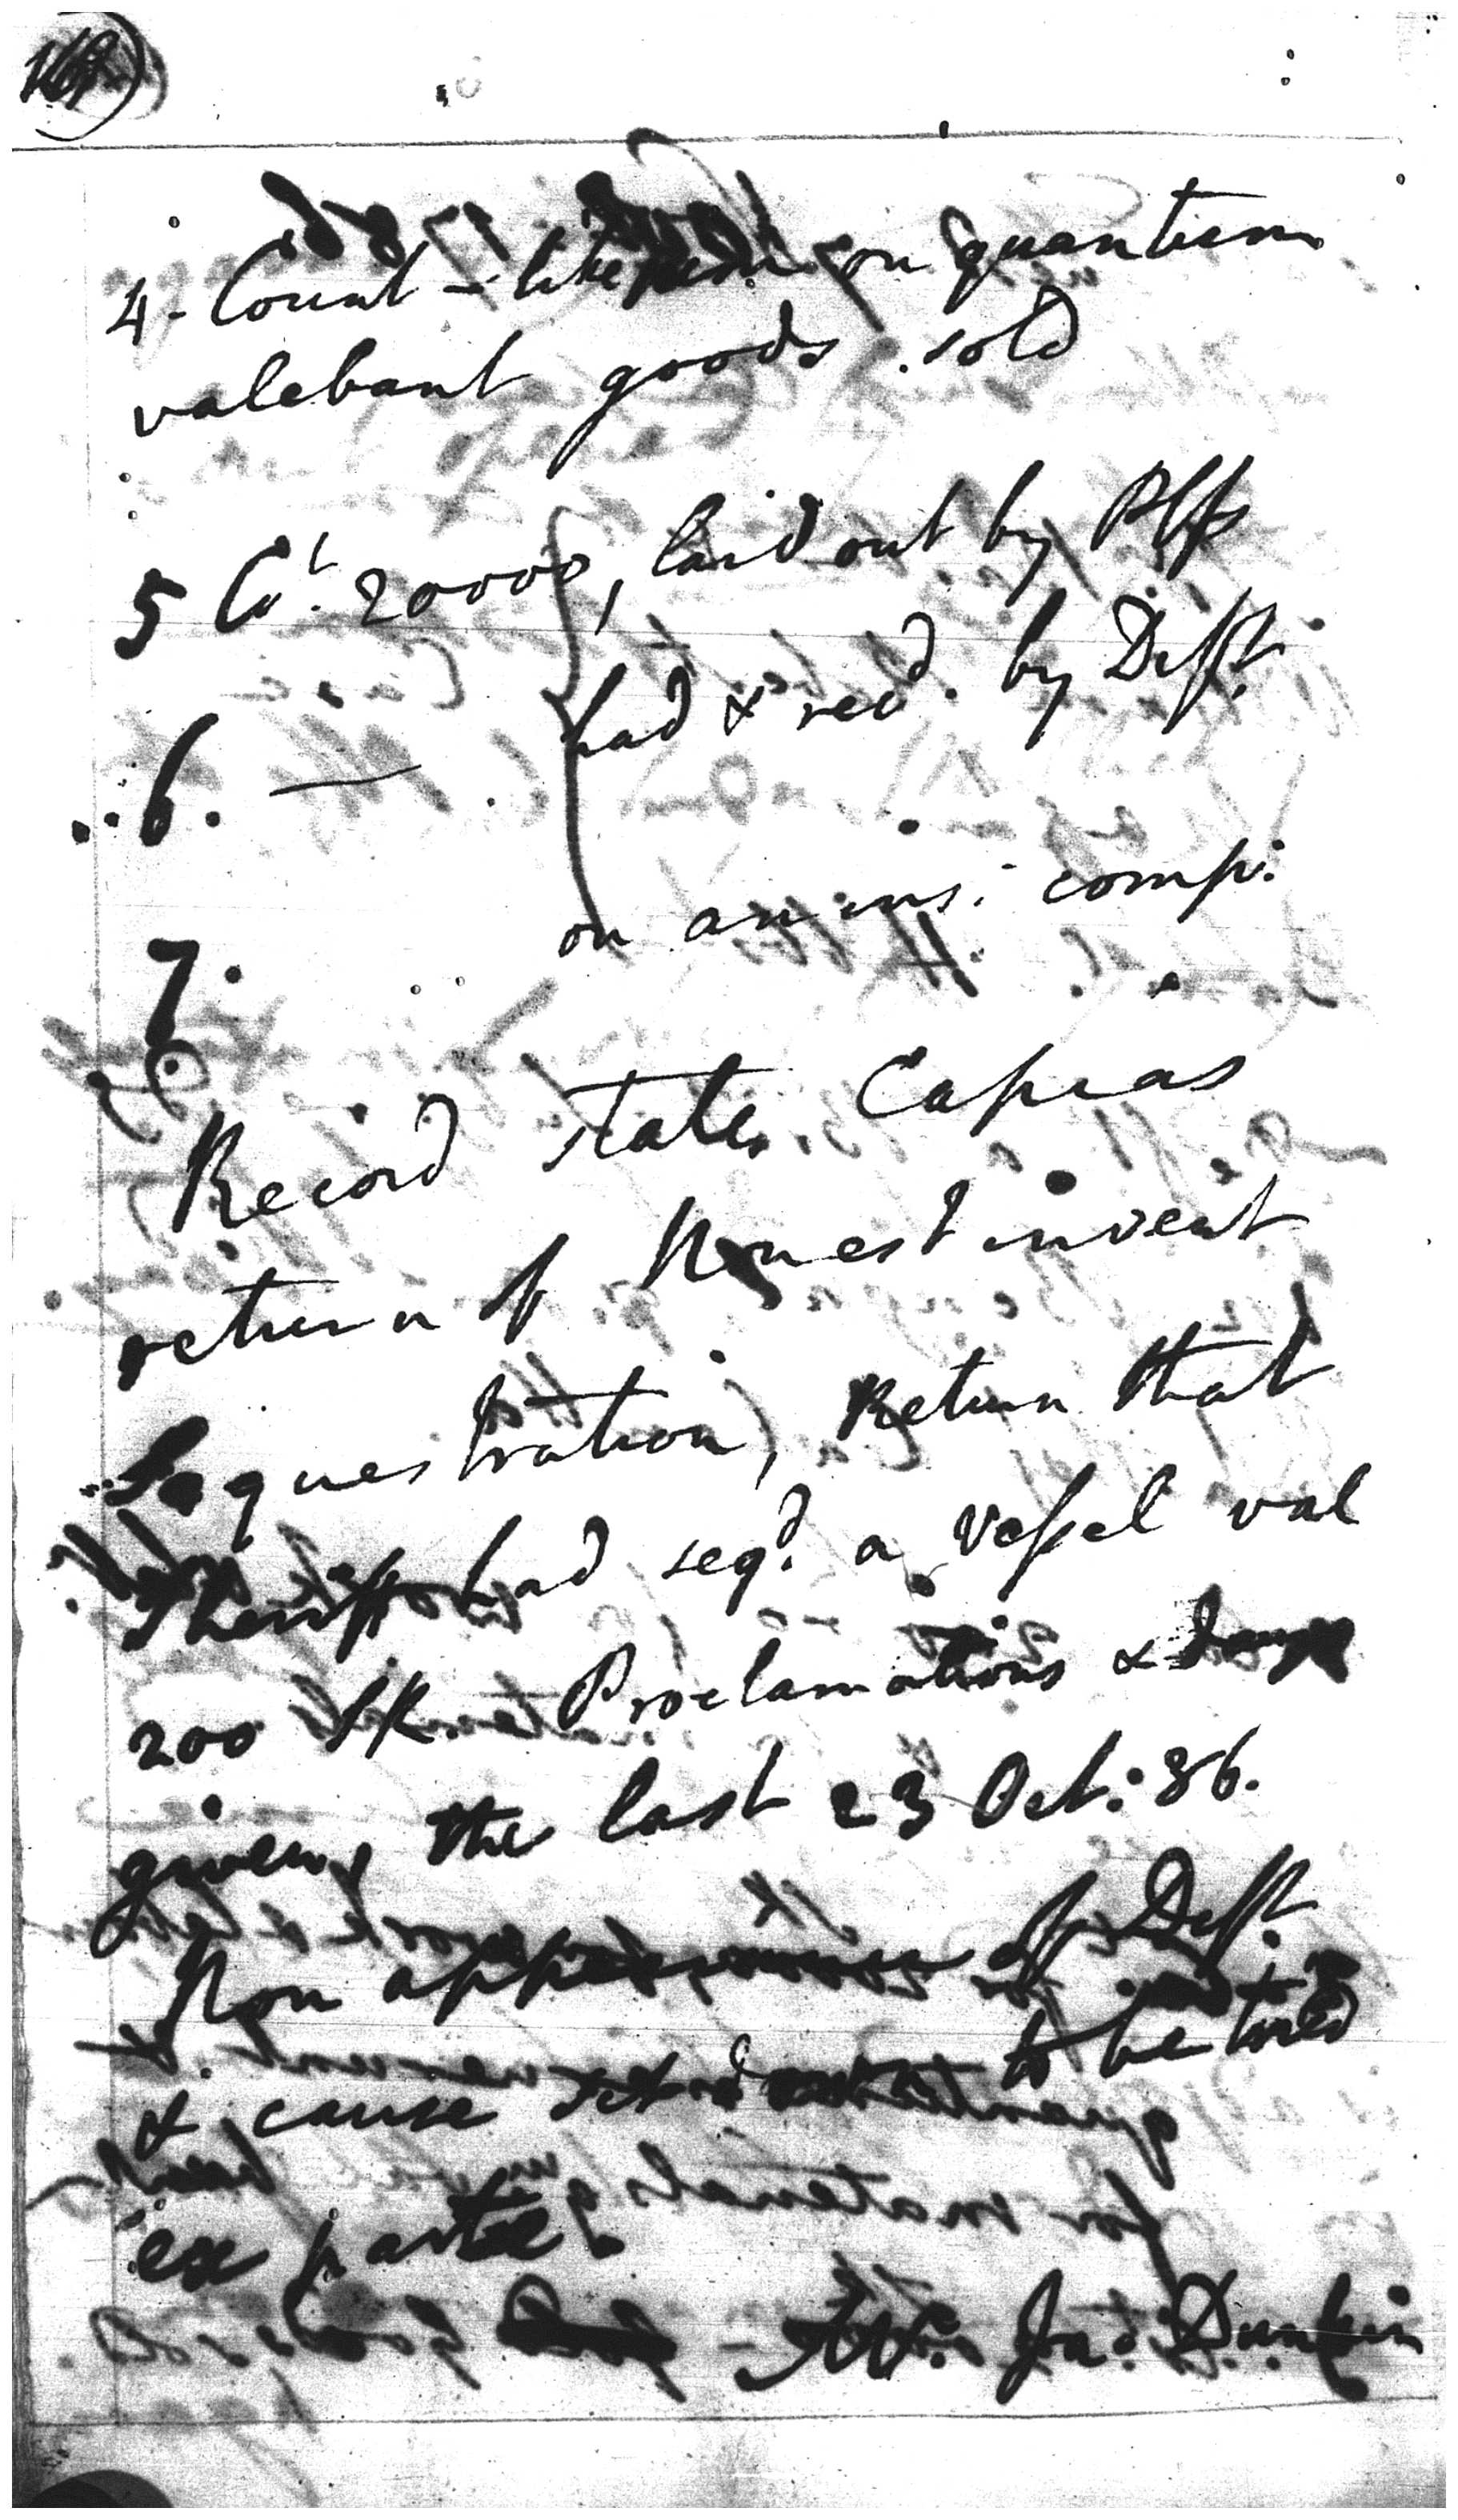 4 - Count - like on quantum
valebant goods sold
5 Ct. 20000, laid out by Plfs
had & recd. by Deft.
6. —
on an ins: comp:
7.
Record states Capias
return of Non est invent
Sequestration, Return that
Sheriff had seqd. a vessel val
200 SR. Proclamations &
given, the last 23 Oct: 86.
Non appearance of Deft.
& cause to be tried
ex parte.
Jno Dunkin